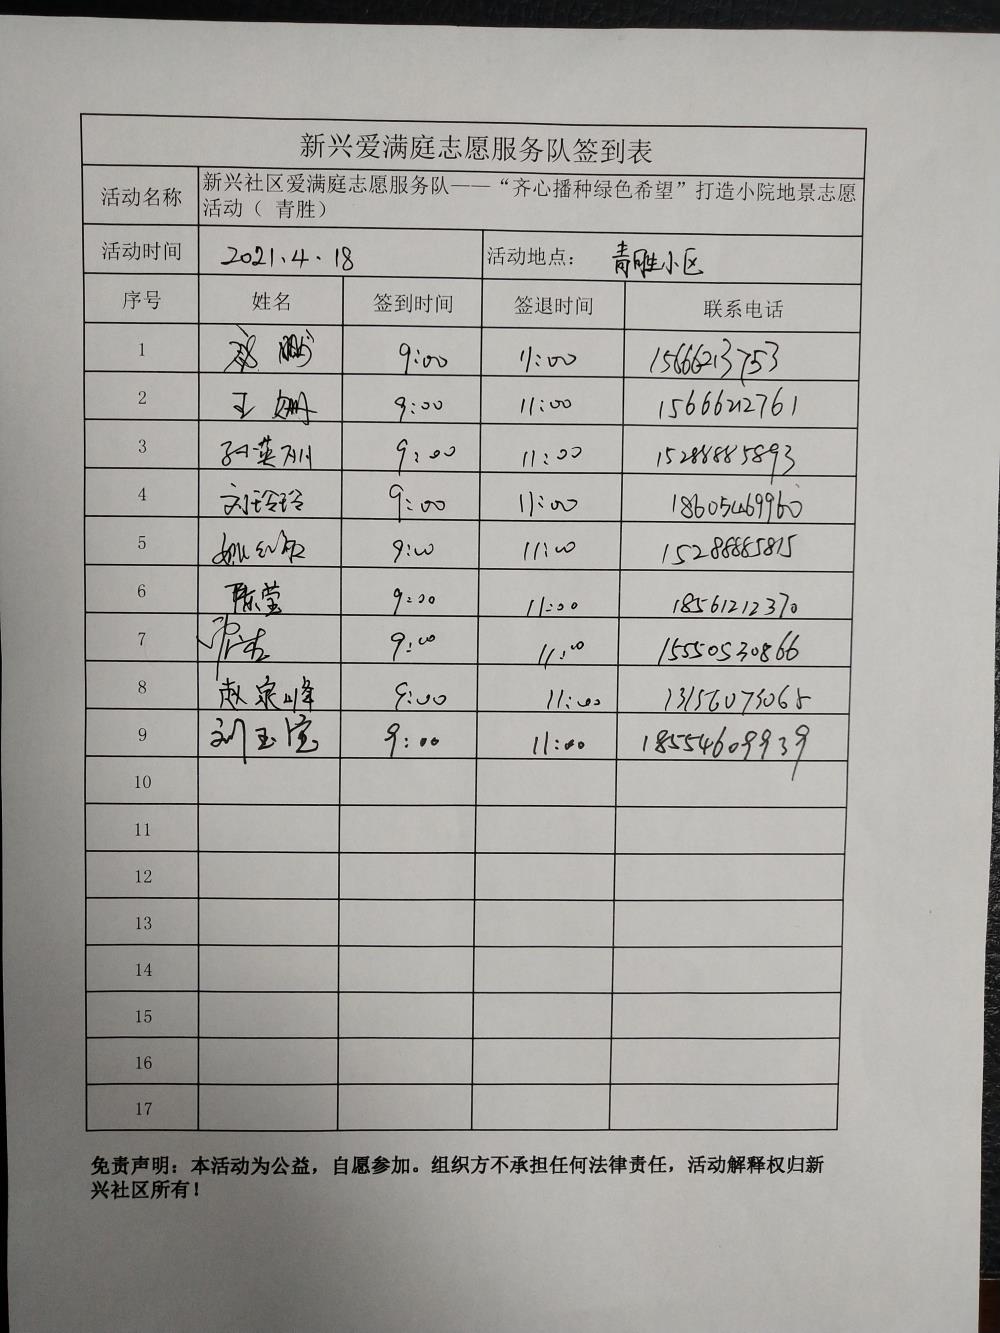 新兴爱满庭志愿服务队签到表
活动名称 新兴社区爱满庭志愿服务队——“齐心播种绿色希望”打造小院地景志愿
活动（ 青胜）
活动时间 2021.4.18 活动地点： 青胜小区
序号 姓名 签到时间 签退时间 联系电话
1 鹏 9:00 11:00 15666213753
2 王姗 9:00 11:00 15666212761
3 9:00 11:00 15288885893
4 刘玲玲 9:00 11:00 18605469960
5 9:00 11:00 15288885815
6 陈莹 9:00 11:00 18561212370
7 9:00 11:00 15550530866
8 赵泉峰 9:00 11:00 13156073065
9 刘玉宝 9:00 11:00 18554609939
10
11
12
13
14
15
16
17
免责声明：本活动为公益，自愿参加。组织方不承担任何法律责任，活动解释权归新
兴社区所有！